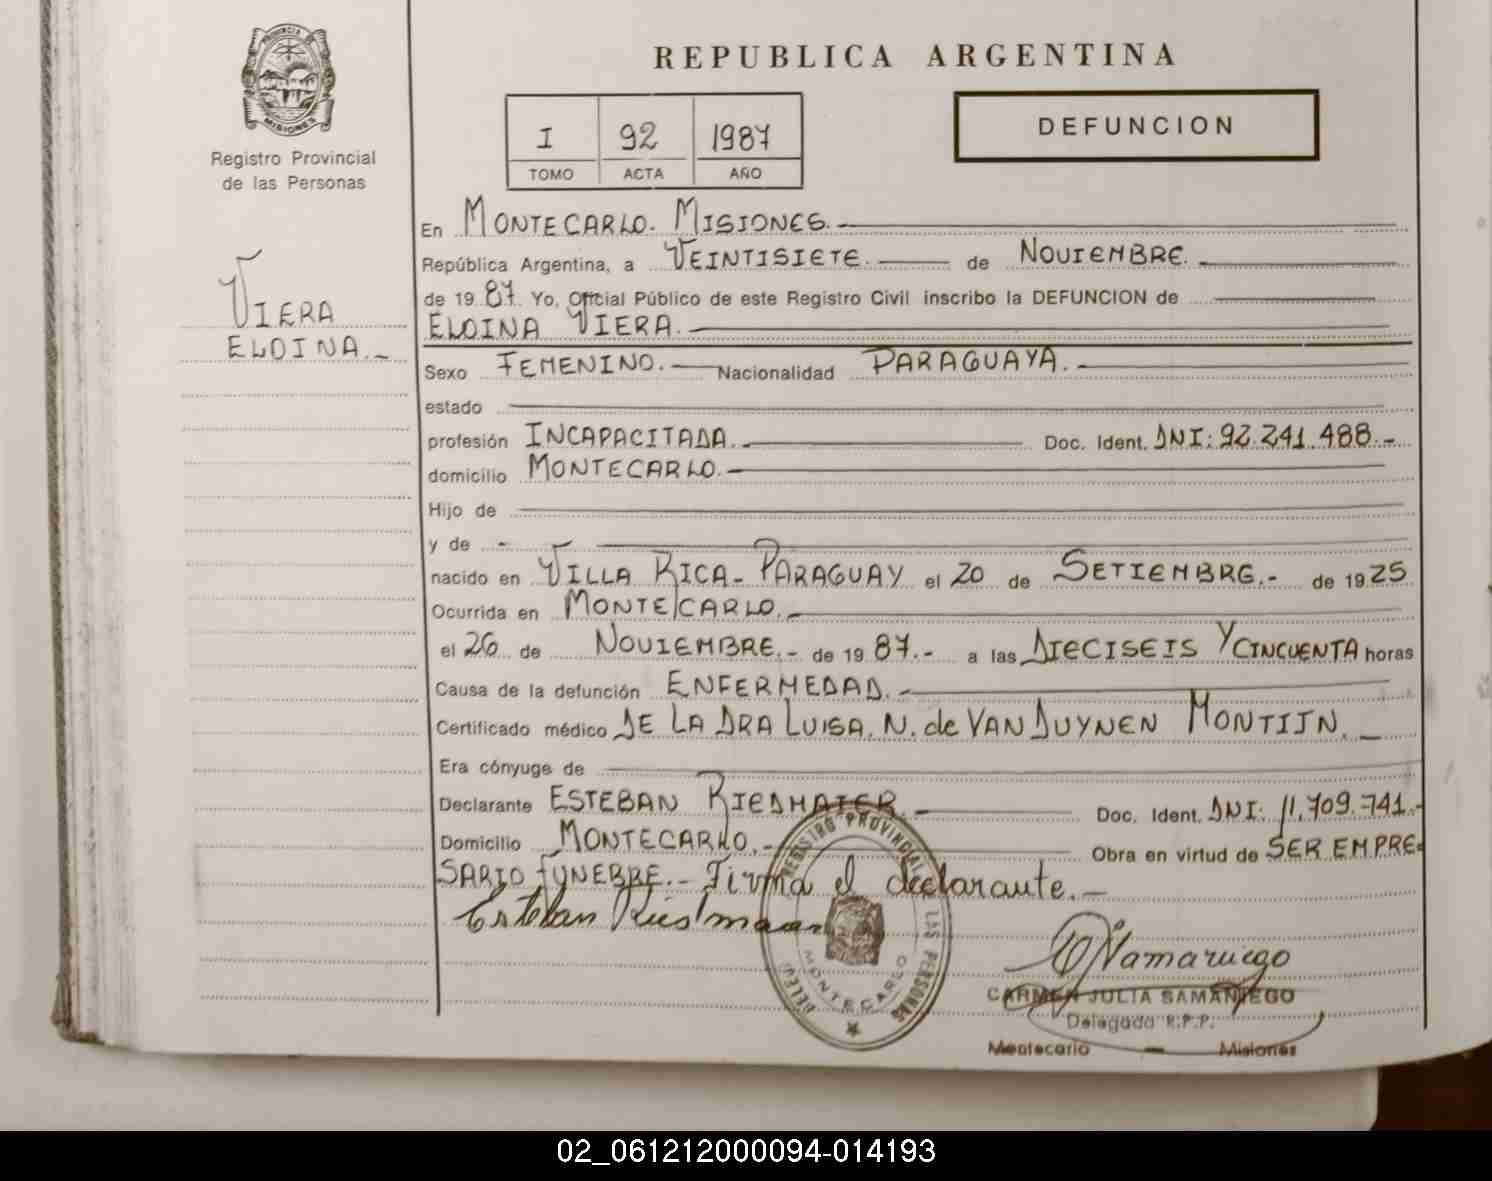 REPUBLICA ARGENTINA
PROVINCIA DE
MISIONES
Registro Provincial
de las Personas
I 92 1987
TOMO ACTA AÑO
DEFUNCION
VIERA
ELOINA.-
En MONTECARLO. MISIONES.-
República Argentina, a VEINTISIETE. de NOVIEMBRE.
de 19 87. Yo, Oficial Público de este Registro Civil inscribo la DEFUNCION de
ELOINA VIERA.
Sexo FEMENINO. Nacionalidad PARAGUAYA.
estado
profesión INCAPACITADA. Doc. Ident. DNI: 92.241.488.-
domicilio MONTECARLO.-
Hijo de
y de -
nacido en VILLA RICA- PARAGUAY el 20 de SETIEMBRE.- de 1925
Ocurrida en MONTECARLO.-
el 26 de NOVIEMBRE.- de 19 87.- a las DIECISEIS Y CINCUENTA horas
Causa de la defunción ENFERMEDAD.-
Certificado médico DE LA DRA LUISA. N. de VAN DUYNEN MONTIJN.-
Era cónyuge de
Declarante ESTEBAN RIEDMAIER.- Doc. Ident. DNI: 11.709.741.-
Domicilio MONTECARLO.- Obra en virtud de SER EMPRE=
SARIO FUNEBRE.- Firma el declarante.-
Esteban
REGISTRO PROVINCIAL DE LAS PERSONAS
MONTECARLO
CARMEN JULIA SAMANIEGO
Delegada R.P.P.
Montecarlo - Misiones
02_061212000094-014193